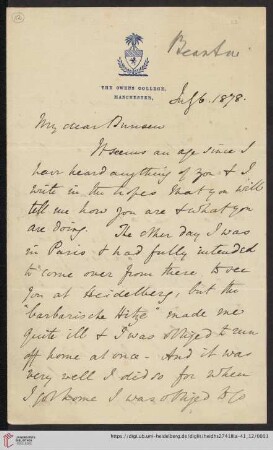 Beantw
THE OWENS COLLEGE,
MANCHESTER,
July 6. 1878.
My dear Bunsen
It seems an age since I
have heard anything of you & I
write in the hopes that you will
tell me how you are & what you
are doing. The other day I was
in Paris & had fully intended
to come over from there to see
you at Heidelberg, but the
"barbarische Hitze" made me
quite ill & I was obliged to run
off home at once – And it was
very well I did so for when
I got home I was obliged to go